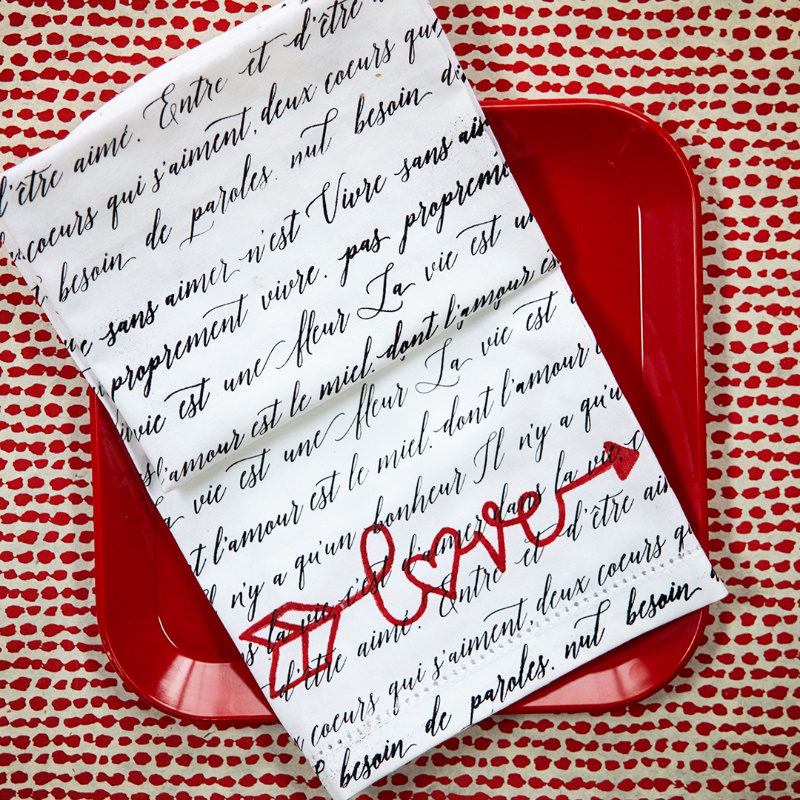 d'être
d'être aimé. Entre et d'être a
coeurs qui s'aiment, deux coeurs qu
besoin de paroles. nul besoin d
sans aimer n'est Vivre sans aim
proprement vivre. pas propreme
vie est une fleur La vie est un
l'amour est le miel. dont l'amour es
vie est une fleur La vie est
t l'amour est le miel. dont l'amour
n'y a qu'un bonheur Il n'y a qu'u
s la vie, c'est d'aimer dans la vie, c
love
d'être aimé. Entre et d'être aim
coeurs qui s'aiment, deux coeurs qu
besoin de paroles. nul besoin d